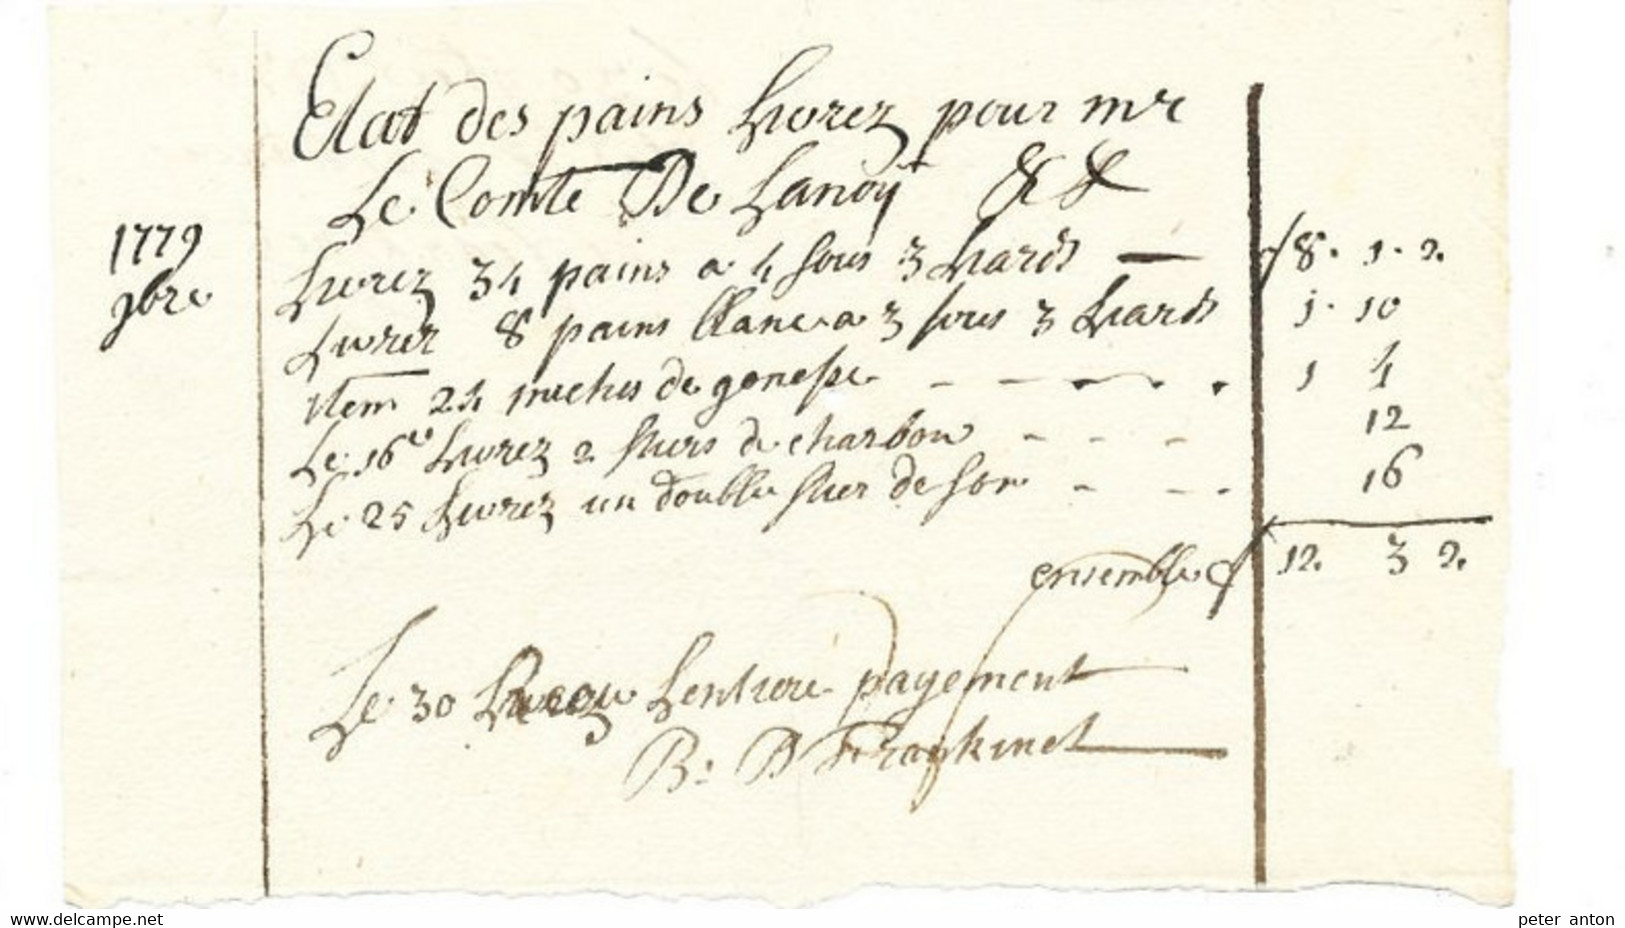 Etat des pains livrez pour mr
Le Comte De Lanoÿ & &
1779
9bre
Livrez 34 pains a 4 sous 3 liards — f 8. 1. 2.
Livrez 8 pains blanc a 3 sous 3 Liards 1. 10
item 24 miches de gonesse - - - - . 1 4
Le 16e livrez 2 stiers de charbon - - - 12
Le 25 livrez un double stier de son - - - 16
ensemble f 12. 3 2.
Le 30 Receu Lentiere payement
B: D Frankinet
www.delcampe.net
peter anton